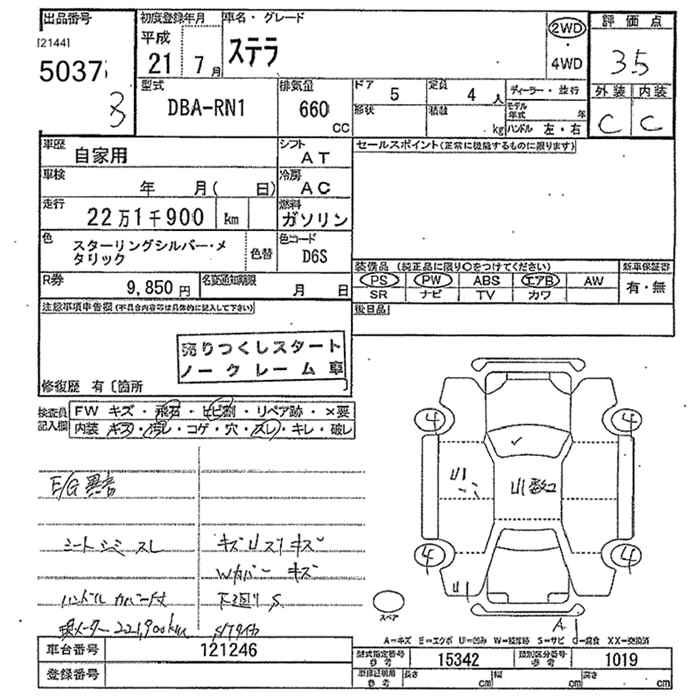 出品番号
[2144]
5037
8
初度登録年月
平成
21 年 7 月
車名・グレード
ステラ
2WD
・
4WD
評価点
3.5
外装 内装
C C
型式
DBA-RN1
排気量
660 cc
ドア
5
定員
4 人
形状
積載
kg
ディーラー・並行
モデル年式 年
ハンドル 左・右
車歴
自家用
シフト
AT
車検
年 月( 日)
冷房
AC
走行
22万1千900 km
燃料
ガソリン
色
スターリングシルバー・メ
タリック
色替
色コード
D6S
R券
9,850円
名変通知期限
月 日
セールスポイント(正常に機能するものに限ります)
装備品 (純正品に限り○をつけてください)
新車保証書
PS PW ABS エアB AW
SR ナビ TV カワ
有・無
後日品
注意事項申告欄(不具合内容等は具体的に記入して下さい)
売りつくしスタート
ノークレーム車
修復歴 有〔箇所
検査員
記入欄
FW キズ・飛石・ヒビ割・リペア跡・×要
内装 キズ・汚レ・コゲ・穴・スレ・キレ・破レ
E/G異音
シートシミ スレ
ハンドルカバー付
現メーター221,900km
キズ U スリキズ
Wカバー キズ
下廻り S
4 4
4 4
スペア
U
A
A=キズ E=エクボ U=凹み W=補修跡 S=サビ C=腐食 XX=交換済
車台番号
121246
登録番号
型式指定番号
参考
15342
類別区分番号
参考
1019
参考
長さ cm 幅 cm 高さ cm